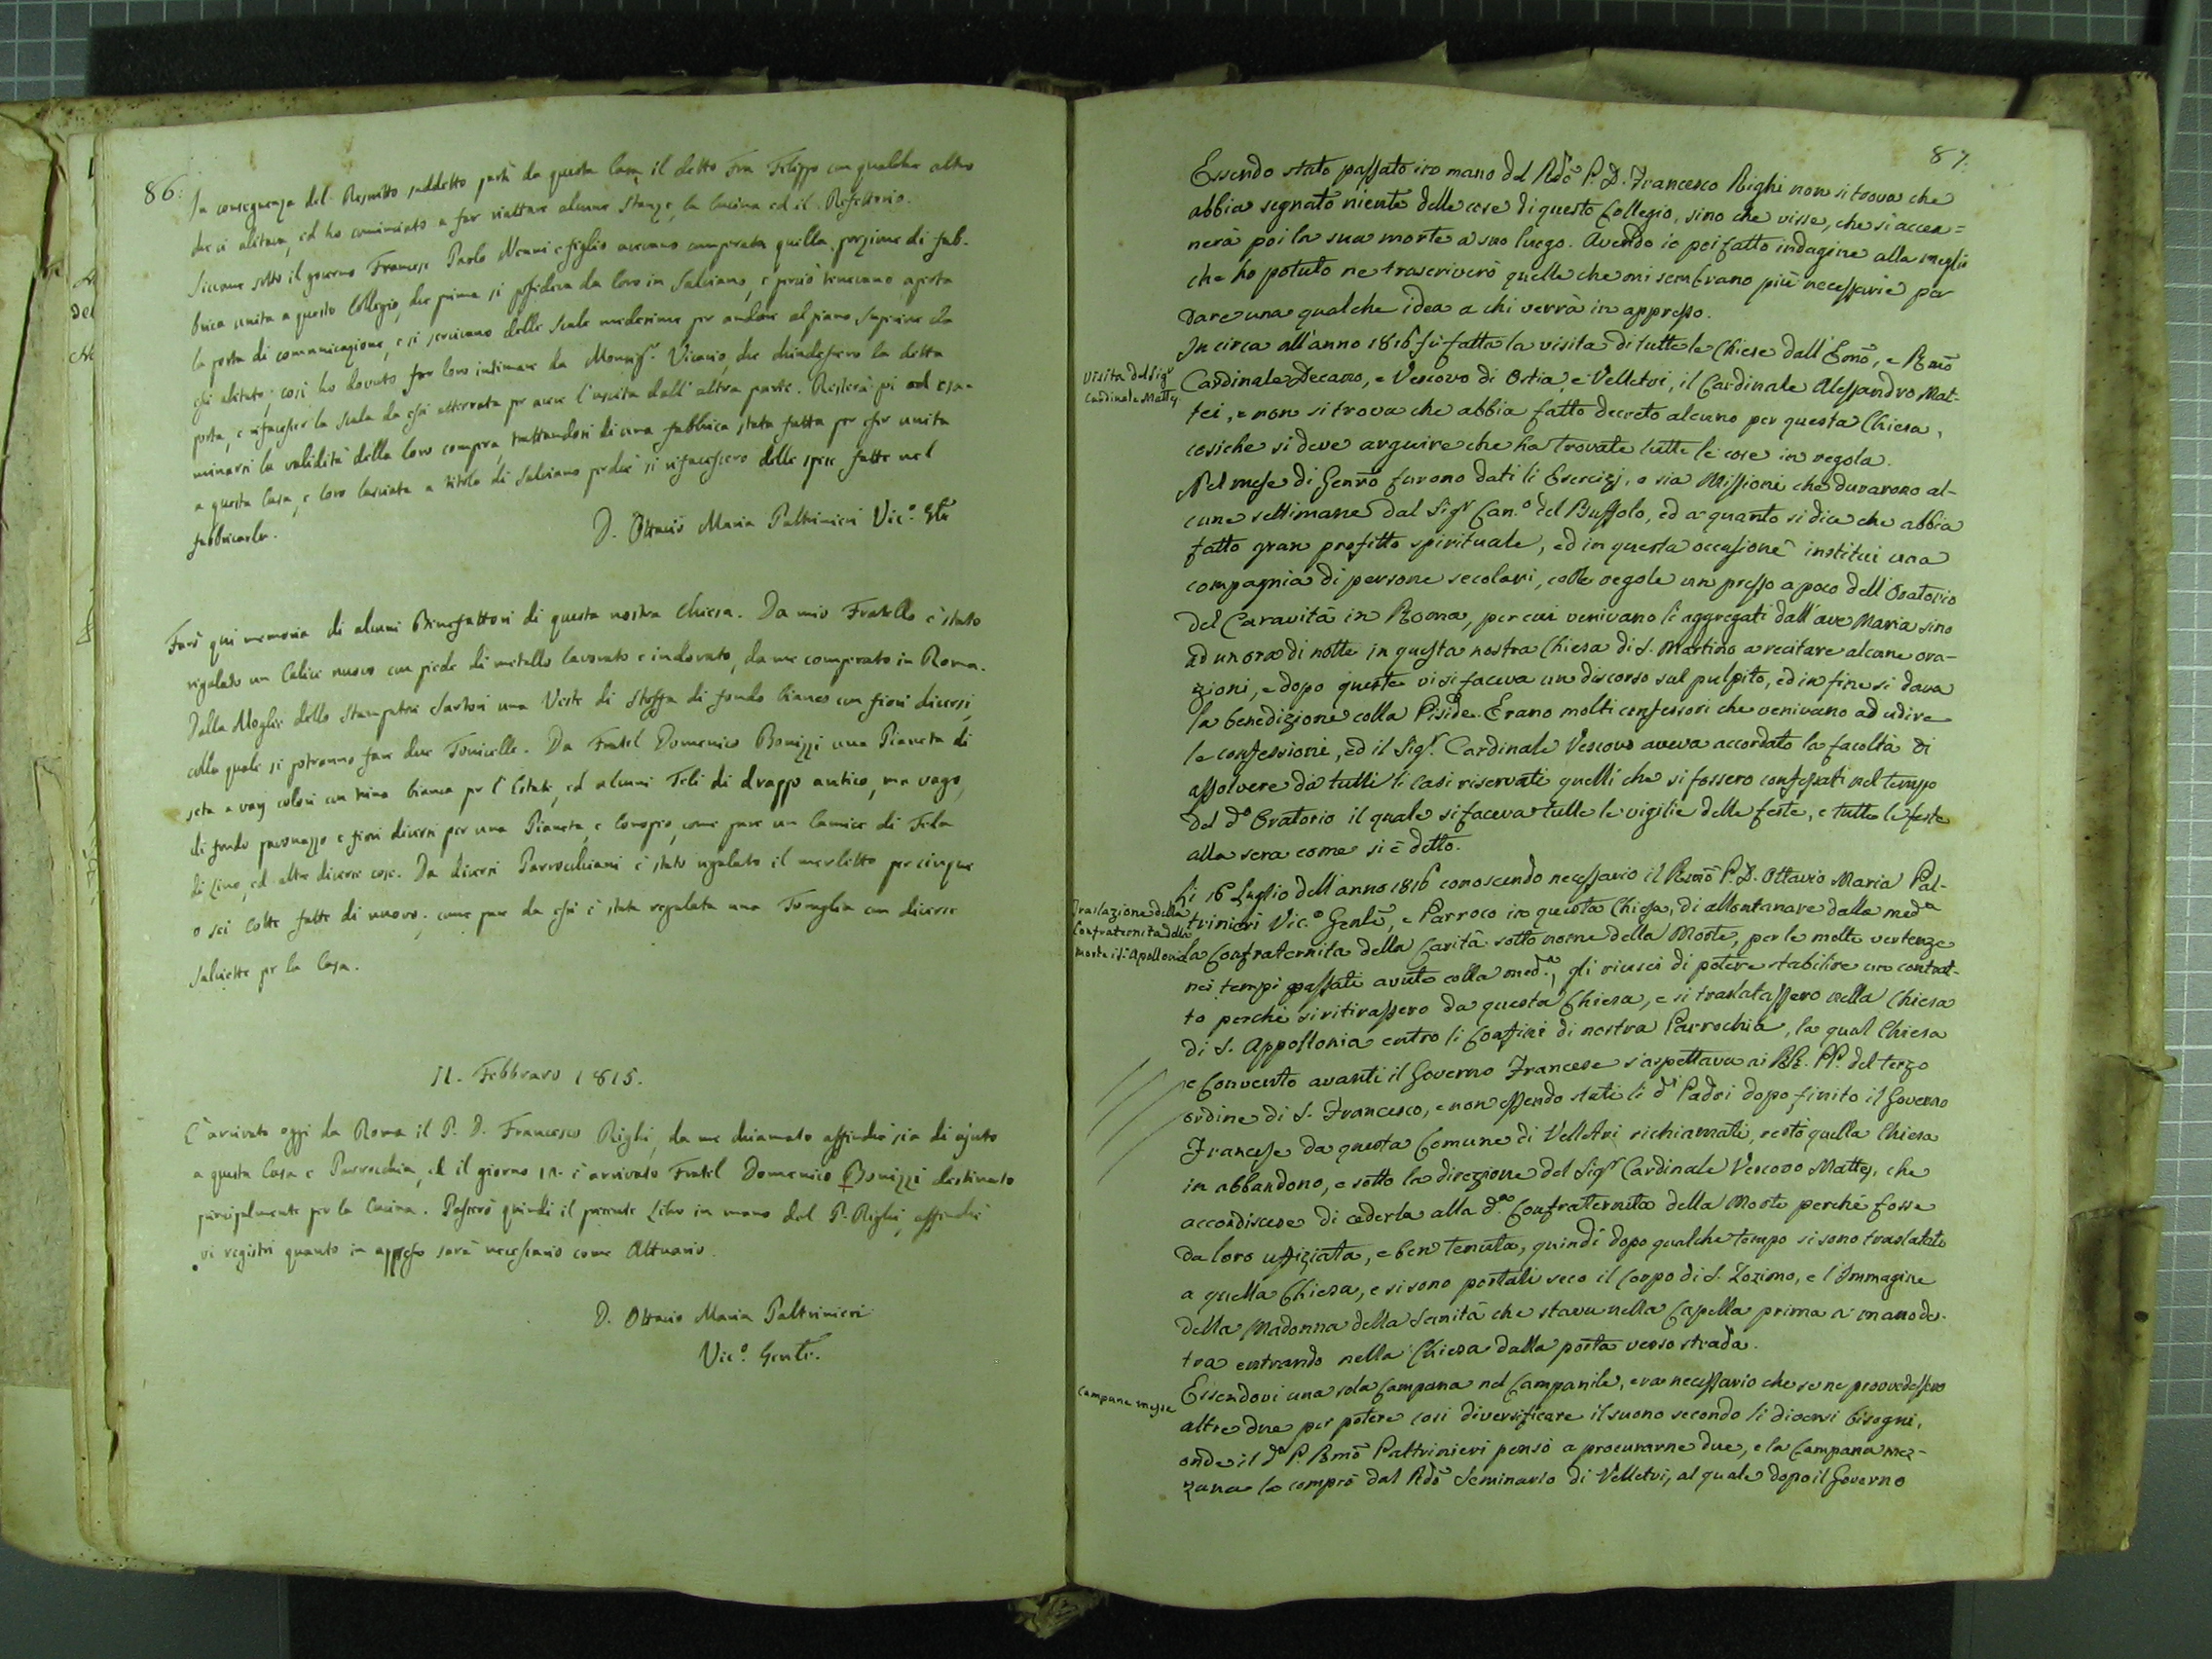 86.
In conseguenza del Rescritto suddetto partì da questa Casa il detto Fra Filippo con qualche altro
che ci abitava, ed ho cominciato a far riattare alcune stanze, la Cucina ed il Refettorio.
Siccome sotto il governo Francese Paolo Nenni e figlio avevano comprata quella porzione di fab-
brica unita a questo Collegio, che prima si possedeva da loro in Salviano, e perciò tenevano aperta
la porta di comunicazione, e si servivano delle Scale medesime per andare al piano Superiore da
essi abitato; così ho dovuto far loro intimare da Monsigr. Vicario, che chiudessero la detta
porta, e rifacesser la scala da essi atterrata per avere l'uscita dall'altra parte. Resterà poi ad esa-
minarsi la validità della loro compra, trattandosi di una fabbrica stata fatta per esser unita
a questa Casa, e loro lasciata a titolo di Salviano perchè si rifacessero delle spese fatte nel
fabbricarla.
D. Ottavio Maria Paltrinieri Vic.o Gle
Farò qui memoria di alcuni Benefattori di questa nostra Chiesa. Da mio Fratello è stato
regalato un Calice nuovo con piede di metallo lavorato e indorato, da me comperato in Roma.
Dalla Moglie dello Stampatore Sartori una Veste di Stoffa di fondo bianco con fiori diversi,
colla quale si potranno fare due Tonicelle. Da Fratel Domenico Bonizzi una Pianeta di
seta a varj colori con trina bianca per l'Estate, ed alcuni Teli di drappo antico, ma vago,
di fondo paonazzo e fiori diversi per una Pianeta, e Conopio, come pure un Camice di Tela
di Lino, ed altre diverse cose. Da diversi Parrocchiani è stato regalato il merletto per cinque
o sei Cotte fatte di nuovo; come pure da essi è stata regalata una Tovaglia con diverse
salviette per la Casa.
11. Febbraro 1815.
È arrivato oggi da Roma il P. D. Francesco Righi, da me chiamato affinchè sia di ajuto
a questa Casa e Parrocchia, ed il giorno è arrivato Fratel Domenico Bonizzi destinato
principalmente per la Cucina. Passerò quindi il presente Libro in mano del P. Righi, affinchè
vi registri quanto in appresso sarà necessario come Attuario.
D. Ottavio Maria Paltrinieri
Vic.o Genle.
87.
Essendo stato passato in mano del Rdo P. D. Francesco Righi non si trova che
abbia segnato niente delle cose di questo Collegio, sino che visse, che si accen=
nerà poi la sua morte a suo luogo. Avendo io poi fatto indagine alla meglio
che ho potuto ne trascriverò quelle che mi sembrano più necessarie per
dare una qualche idea a chi verrà in appresso.
In circa all'anno 1816 fù fatta la visita di tutte le Chiese dall'Emo, e Rmo
Visita del Sigr
Cardinale Mattej
Cardinale Decano, e Vescovo di Ostia, e Velletri, il Cardinale Alessandro Mat-
tei, e non si trova che abbia fatto decreto alcuno per questa Chiesa,
cosiche si deve arguire che ha trovate tutte le cose in regola.
Nel mese di Genro furono dati li Esercizj, o sia Missioni che durarono al-
cune settimane dal Sigr Can.o del Buffolo, ed a quanto si dice che abbia
fatto gran profitto spirituale, ed in questa occasione instituì una
compagnia di persone secolari, colle regole un presso a poco dell'Oratorio
del Caravità in Roma, per cui venivano li aggregati dall'ave Maria sino
ad un ora di notte in questa nostra Chiesa di S. Martino a recitare alcune ora-
zioni, e dopo queste vi si faceva un discorso sul pulpito, ed in fine si dava
la benedizione colla Piside. Erano molti confessori che venivano ad udire
le confessioni, ed il Sigr. Cardinale Vescovo aveva accordato la facoltà di
assolvere da tutti li casi riservati quelli che si fossero confessati nel tempo
del do Oratorio il quale si faceva tutte le vigilie delle feste, e tutte le feste
alla sera come si è detto.
Li 16 Luglio dell'anno 1816 conoscendo necessario il Rmo P. D. Ottavio Maria Pal-
Traslazione della
Confraternita della
morte in S. Apollonia
trinieri Vic.o Genle, e Parroco in questa Chiesa, di allontanare dalla meda
la Confraternita della Carità sotto nome della Morte, per le molte vertenze
nei tempi passati avute colla meda, gli riuscì di potere stabilire un contrat-
to perchè si ritirassero da questa Chiesa, e si traslatassero nella Chiesa
di S. Appollonia entro li Confini di nostra Parrochia, la qual Chiesa
e Convento avanti il Governo Francese s'aspettava ai RR. PP. del terzo
ordine di S. Francesco, e non essendo stati li di Padri dopo finito il Governo
Francese da questa Comune di Velletri richiamati, restò quella Chiesa
in abbandono, e sotto la direzione del Sigr Cardinale Vescovo Mattej, che
accondiscese di cederla alla da Confraternita della Morte perchè fosse
da loro uffiziata, e ben tenuta, quindi dopo qualche tempo si sono traslatati
a quella Chiesa, e si sono portati seco il Corpo di S. Zozimo, e l'Immagine
della Madonna della Sanità che stava nella Capella prima a mano de-
tra entrando nella Chiesa dalla porta verso strada.
Campane messe
Essendovi una sola Campana nel Campanile, era necessario che se ne provvedessero
altre due per potere così diversificare il suono secondo li diversi bisogni,
onde il do P. Rmo Paltrinieri pensò a procurarne due, e la Campana mez-
zana la comprò dal Rdo Seminario di Velletri, al quale dopo il Governo